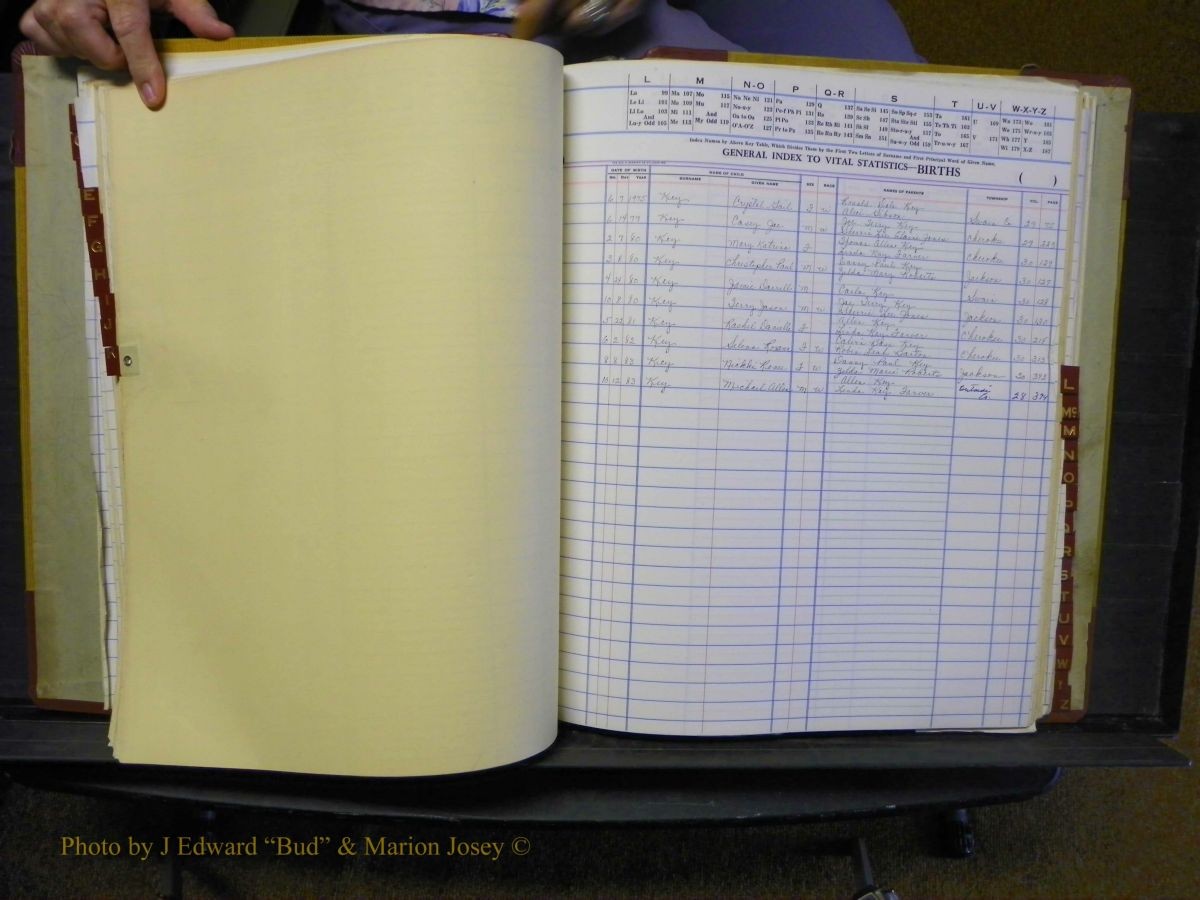 L M N-O P Q-R S T U-V W-X-Y-Z
La 99 Ma 107 Mo 115 Na Ne Ni 121 Pa 129 Q 137 Sa Se Si 145 Sn Sp Sq-r 153 Ta 161 Wa 173 Wo 181
Le Li 101 Me 109 Mu 117 No-x-y 123 Pe-f Ph Pl 131 Ra 139 Sc Sh 147 Sta Ste Sti 155 Te Th Ti 163 U 169 We 175 Wr-u-y 183
Ll Lo 103 Mi 111 And Oa to Os 125 Pi Po 133 Re Rh Ri 141 Sk Sl 149 Sto-r-u-y 157 To 165 V 171 Wh 177 Y 185
And
Lu-y Odd 105 Mc 113 My Odd 119 O'A-O'Z 127 Pr to Ps 135 Ro Ru Ry 143 Sm Sn 151 Su-w-y Odd 159 Tr-u-w-y 167 Wi 179 X-Z 187
Index Names by Above Key Table, Which Divides Them by the First Two Letters of Surname and First Principal Word of Given Name.
GENERAL INDEX TO VITAL STATISTICS—BIRTHS ( )
DATE OF BIRTH NAME OF CHILD SEX RACE NAMES OF PARENTS TOWNSHIP VOL. PAGE
Mo. Day Year SURNAME GIVEN NAME
6 7 1975 Key Crystal Gail F W Key Alice Gibson Swain Co 29
6 14 79 Key Casey Joe M W Joe Terry Key Sherrie Lee Jones Cherokee 29 283
2 7 80 Key Mary Katrina F Thomas Allen Key Linda Kay Farver Cherokee 30 129
3 8 80 Key Christopher Paul M W Danny Paul Key Zelda Mary Roberts Jackson 30 127
4 24 80 Key Darrell M Carla Key Swain 30 128
10 8 80 Key Terry Jason M W Joe Terry Key Sherrie Lee Jones Jackson 30 130
5 22 81 Key Rachel Danielle F Allen Key Linda Kay Farver Cherokee 30 215
6 2 82 Key Selena Key Robin Leah Carter Cherokee 30 313
8 8 83 Key Nickki F W Danny Paul Key Zelda Marie Roberts Jackson 30 393
10 12 83 Key Michael Allen M W Allen Key Linda Kay Farver Outside Co. 28 374
E
F
G
H
I
J
K
L
Mc
M
N
O
P
Q
R
S
T
U
V
W
Z
Photo by J Edward “Bud” & Marion Josey ©